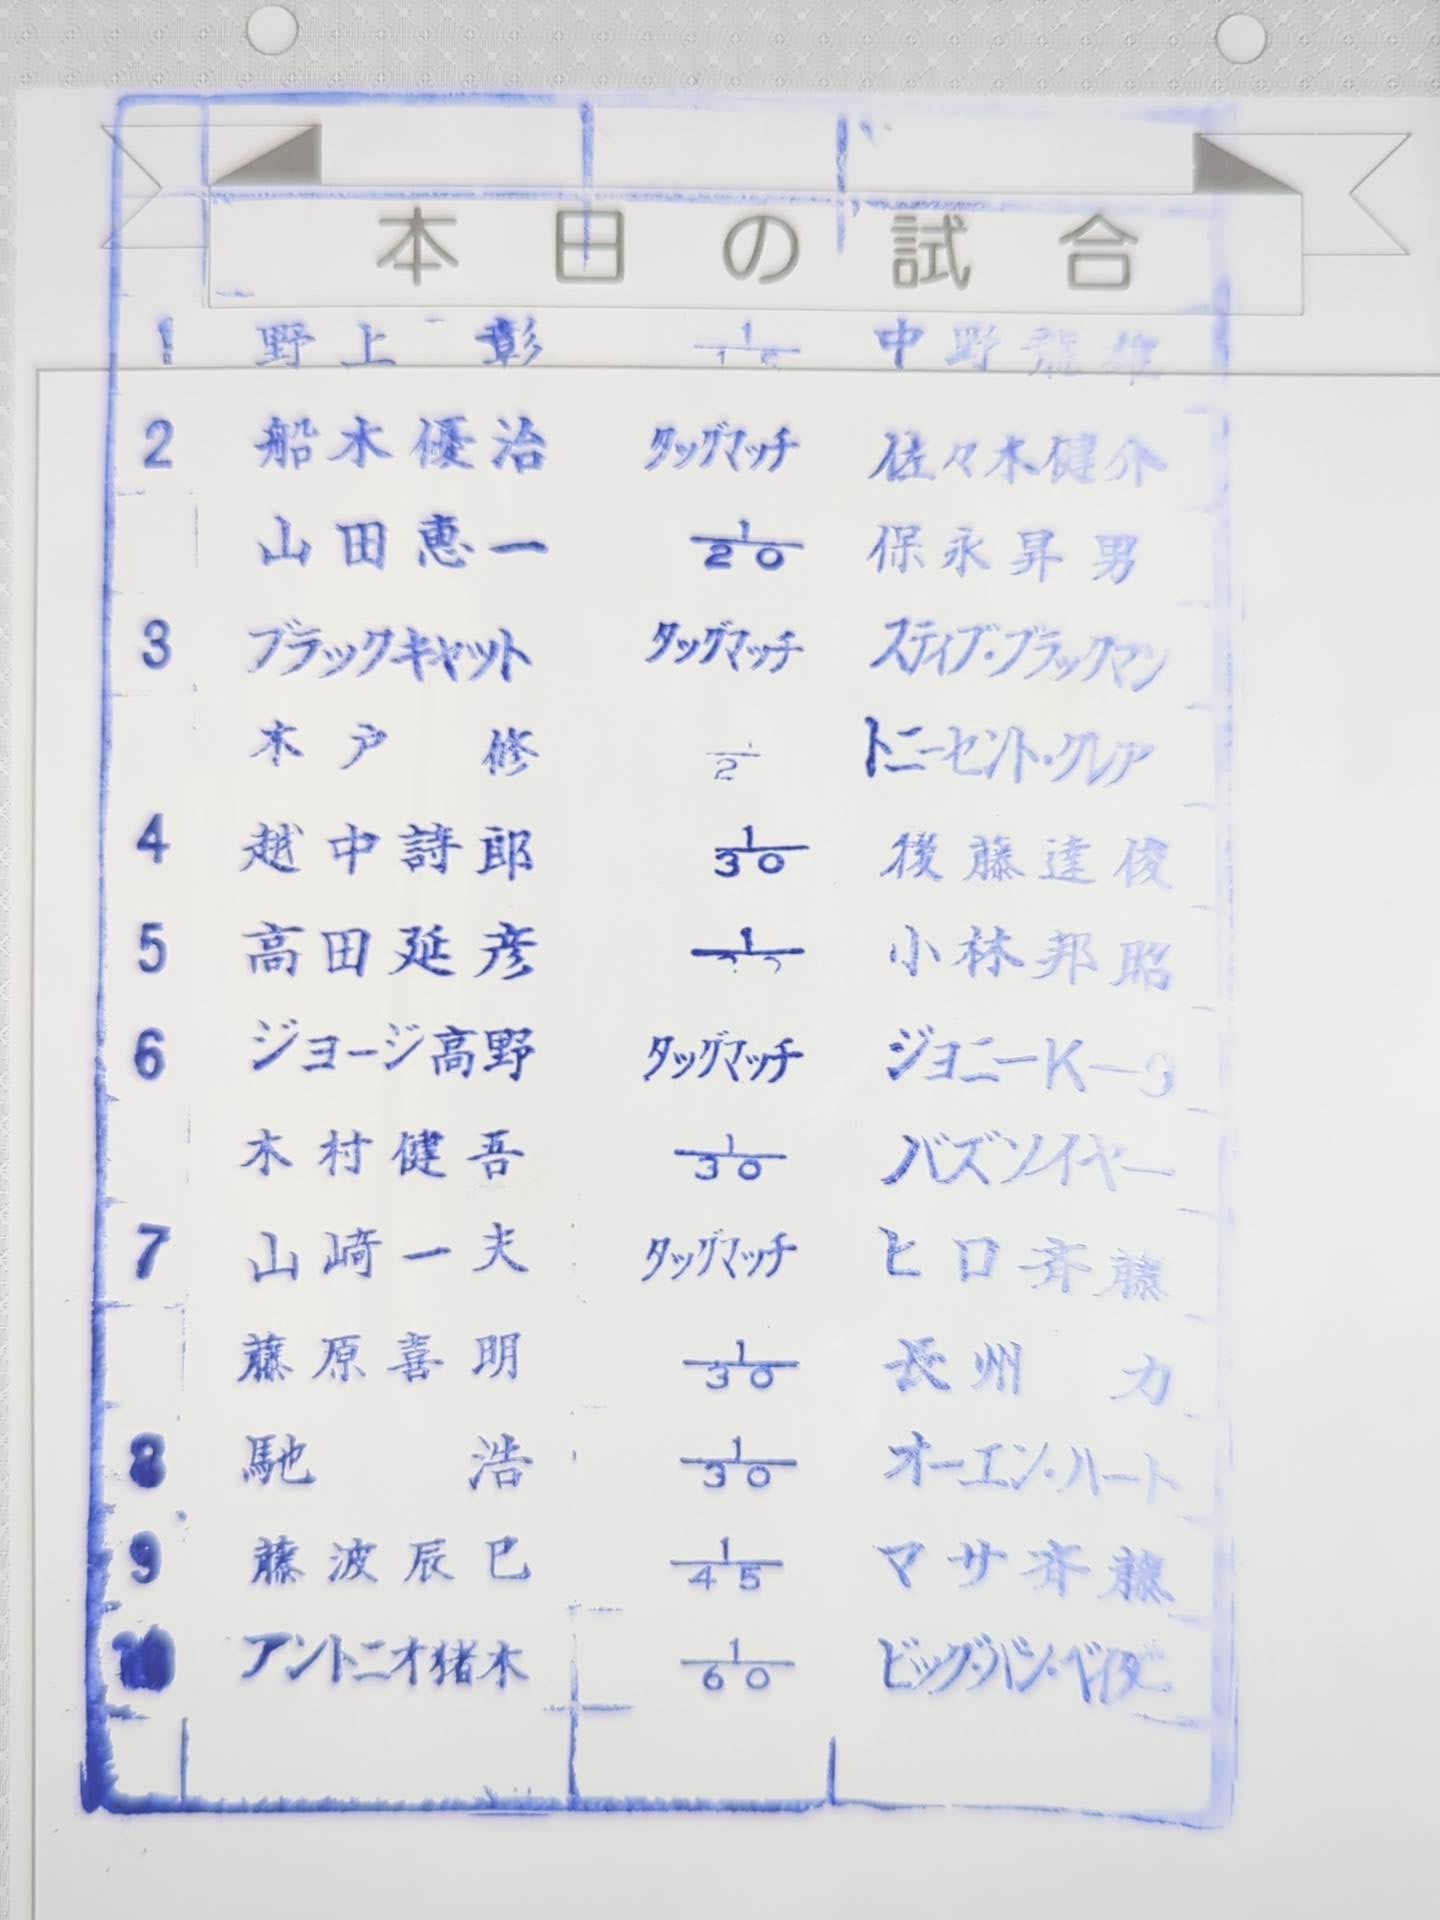 本日の試合
1 野上 彰 1 中野龍雄
2 船木優治 タッグマッチ 佐々木健介
山田恵一 1/20 保永昇男
3 ブラックキャット タッグマッチ スティブ・ブラックマン
木戸 修 1/2 トニーセント・クレア
4 越中詩郎 1/30 後藤達俊
5 高田延彦 1 小林邦昭
6 ジョージ高野 タッグマッチ ジョニーK-9
木村健吾 1/30 バズソイヤー
7 山崎一夫 タッグマッチ ヒロ斉藤
藤原喜明 1/30 長州 力
8 馳 浩 1/30 オーエン・ハート
9 藤波辰巳 1/45 マサ斉藤
10 アントニオ猪木 1/60 ビッグ・バン・ベイダー